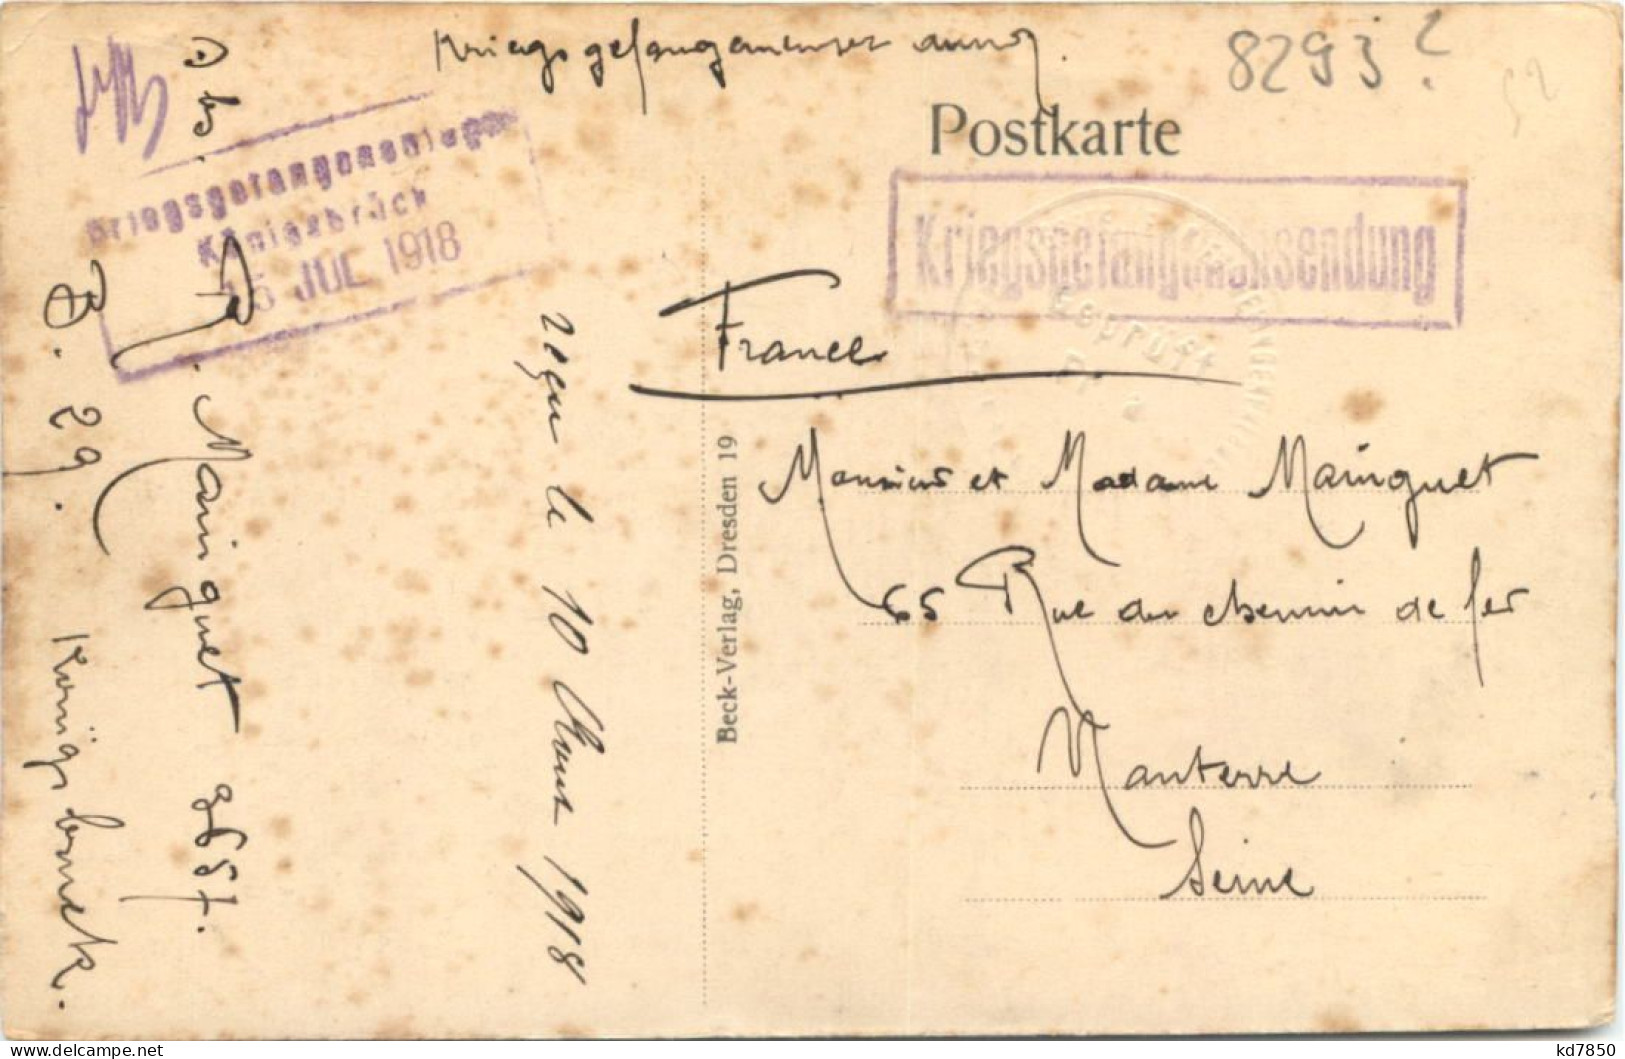 Kriegsgefangenensendung.
8293?
52
Postkarte
Kriegsgefangenenlager
Königsbrück
15 JUL 1918
Kriegsgefangenensendung
Geprüft
France
Monsieur et Madame Mainguet
65 Rue du chemin de fer
Nanterre
Seine
Beck-Verlag, Dresden 19
reçu le 10 1918
Abs. R. Mainguet 9657.
B. 29. Königsbrück.
kd7850